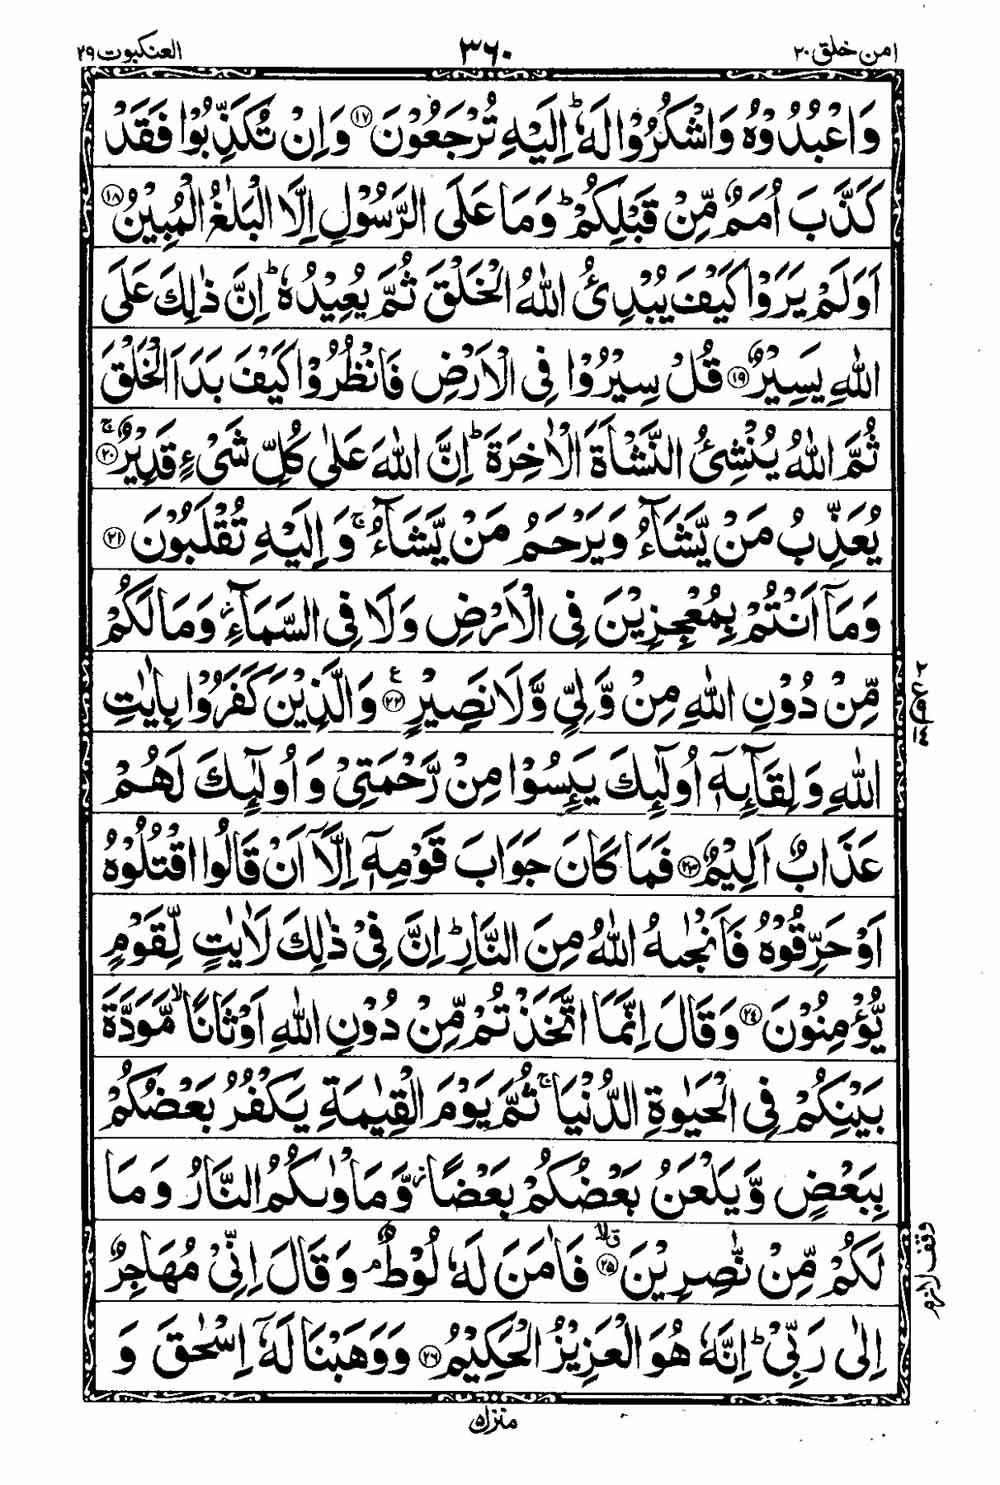 امن خلق ٢٠ ٣٦٠ العنكبوت ٢٩
وَاعْبُدُوْهُ وَاشْكُرُوْا لَهٗ ؕ اِلَيْهِ تُرْجَعُوْنَ ⑰ وَاِنْ تُكَذِّبُوْا فَقَدْ
كَذَّبَ اُمَمٌ مِّنْ قَبْلِكُمْ ؕ وَمَا عَلَى الرَّسُوْلِ اِلَّا الْبَلٰغُ الْمُبِيْنُ ⑱
اَوَلَمْ يَرَوْا كَيْفَ يُبْدِئُ اللّٰهُ الْخَلْقَ ثُمَّ يُعِيْدُهٗ ؕ اِنَّ ذٰلِكَ عَلَى
اللّٰهِ يَسِيْرٌ ⑲ قُلْ سِيْرُوْا فِى الْاَرْضِ فَانْظُرُوْا كَيْفَ بَدَاَ الْخَلْقَ
ثُمَّ اللّٰهُ يُنْشِئُ النَّشْاَةَ الْاٰخِرَةَ ؕ اِنَّ اللّٰهَ عَلٰى كُلِّ شَىْءٍ قَدِيْرٌ ۚ ⑳
يُعَذِّبُ مَنْ يَّشَآءُ وَيَرْحَمُ مَنْ يَّشَآءُ ۚ وَاِلَيْهِ تُقْلَبُوْنَ ㉑
وَمَاۤ اَنْتُمْ بِمُعْجِزِيْنَ فِى الْاَرْضِ وَلَا فِى السَّمَآءِ ؗ وَمَا لَكُمْ
مِّنْ دُوْنِ اللّٰهِ مِنْ وَّلِىٍّ وَّلَا نَصِيْرٍ ㉒ ع وَالَّذِيْنَ كَفَرُوْا بِاٰيٰتِ
اللّٰهِ وَلِقَآئِهٖۤ اُولٰٓئِكَ يَئِسُوْا مِنْ رَّحْمَتِىْ وَاُولٰٓئِكَ لَهُمْ
عَذَابٌ اَلِيْمٌ ㉓ فَمَا كَانَ جَوَابَ قَوْمِهٖۤ اِلَّاۤ اَنْ قَالُوا اقْتُلُوْهُ
اَوْ حَرِّقُوْهُ فَاَنْجٰىهُ اللّٰهُ مِنَ النَّارِ ؕ اِنَّ فِىْ ذٰلِكَ لَاٰيٰتٍ لِّقَوْمٍ
يُّؤْمِنُوْنَ ㉔ وَقَالَ اِنَّمَا اتَّخَذْتُمْ مِّنْ دُوْنِ اللّٰهِ اَوْثَانًا ۙ مَّوَدَّةَ
بَيْنِكُمْ فِى الْحَيٰوةِ الدُّنْيَا ۚ ثُمَّ يَوْمَ الْقِيٰمَةِ يَكْفُرُ بَعْضُكُمْ
بِبَعْضٍ وَّيَلْعَنُ بَعْضُكُمْ بَعْضًا ؗ وَّمَاْوٰىكُمُ النَّارُ وَمَا
لَكُمْ مِّنْ نّٰصِرِيْنَ ㉕ ق لا فَاٰمَنَ لَهٗ لُوْطٌ ۘ وَقَالَ اِنِّىْ مُهَاجِرٌ
اِلٰى رَبِّىْ ؕ اِنَّهٗ هُوَ الْعَزِيْزُ الْحَكِيْمُ ㉖ وَوَهَبْنَا لَهٗۤ اِسْحٰقَ وَ
وقف لازم
منزل ٥